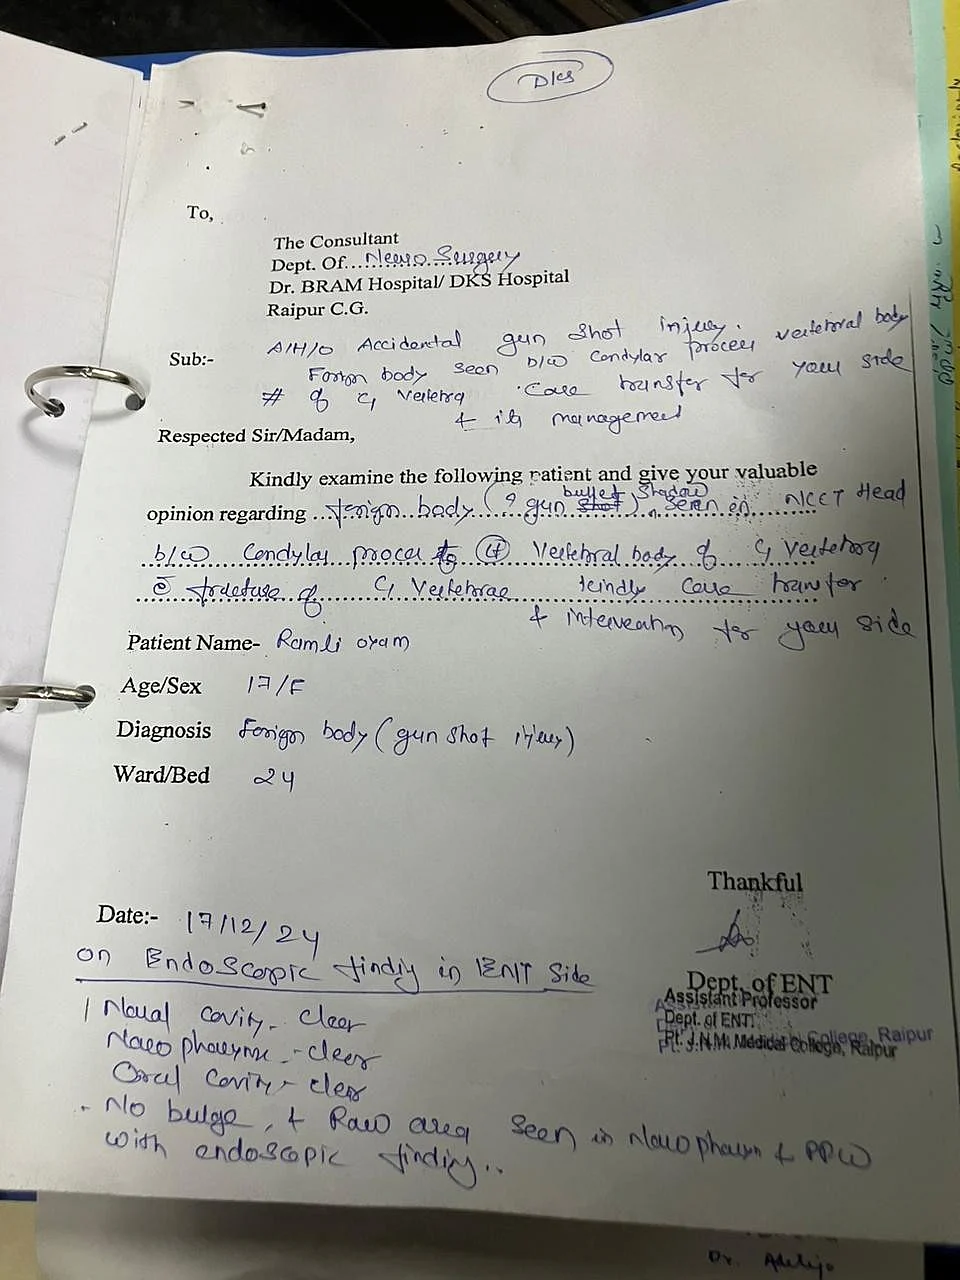 DKS
To,
The Consultant
Dept. Of....Neuro Surgery
Dr. BRAM Hospital/ DKS Hospital
Raipur C.G.
Sub:- A/H/O Accidental gun shot injury.
Forign body seen b/w Condylar process vertebral body
# of C1 vertebra . Case transfer for your side
& its management
Respected Sir/Madam,
Kindly examine the following patient and give your valuable
opinion regarding ...forign body (? gun bullet shadow) seen in NCCT Head
b/w Condylar process to (Lt) Vertebral body of C1 vertebra
c̄ fracture of C1 Vertebrae kindly case transfer
& intervention for your side
Patient Name- Ramli oram
Age/Sex 17/F
Diagnosis Forign body (gun shot injury)
Ward/Bed 24
Thankful
Date:- 17/12/24
on Endoscopic finding in ENT Side
Dept. of ENT
Assistant Professor
Dept. of ENT
Pt. J.N.M. Medical College, Raipur
Nasal cavity - clear
Naso pharynx - clear
Oral cavity - clear
- No bulge, & Raw area seen in Nasopharyn & PPW
with endoscopic finding..
Dr.